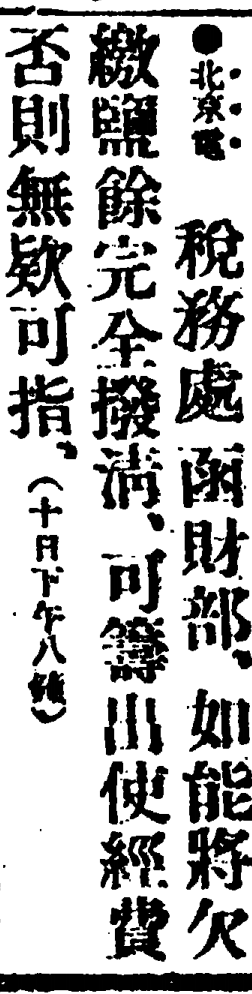 ●北京電 稅務處函財部、如能將欠
繳鹽餘完全撥清、可籌出使經費
否則無欵可指、（十日下午八鐘）